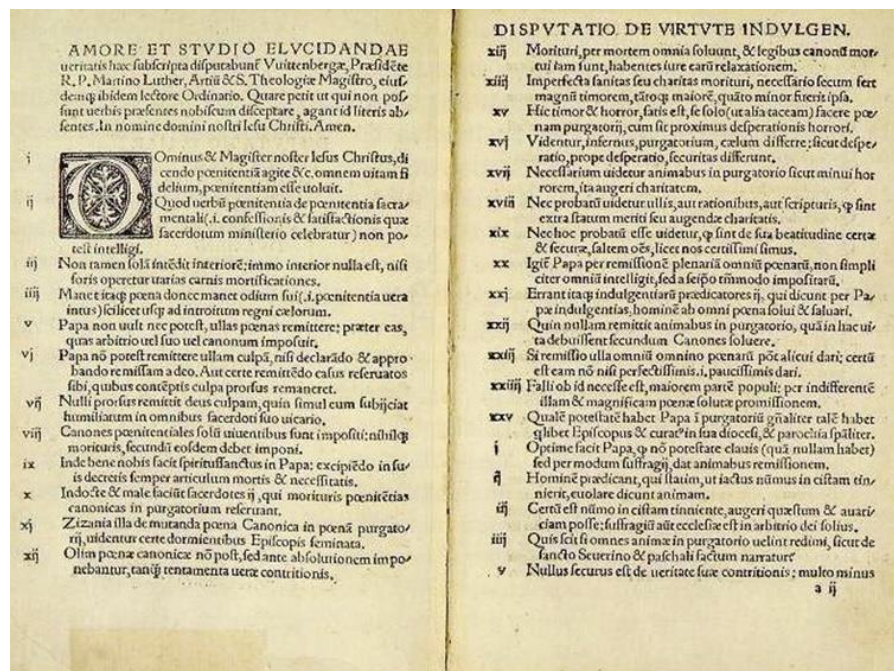 AMORE ET STVDIO ELVCIDANDAE
ueritatis hæc subscripta disputabunt̃ Vuittenbergæ, Præsidẽte
R. P. Martino Luther, Artiũ & S. Theologiæ Magistro, eius-
demq; ibidem lectore Ordinario. Quare petit ut qui non pos-
sunt uerbis præsentes nobiscum disceptare, agant id literis ab-
sentes. In nomine domini nostri Iesu Christi. Amen.
i DOminus & Magister noster Iesus Christus, di
cendo pœnitentiã agite &c. omnem uitam fi
delium, pœnitentiam esse uoluit.
ij Quod uerbũ pœnitentia de pœnitentia sacra-
mentali (.i. confessionis & satisfactionis quæ
sacerdotum ministerio celebratur) non po-
test intelligi.
iij Non tamen solã intẽdit interiorẽ: immo interior nulla est, nisi
foris operetur uarias carnis mortificationes.
iiij Manet itaq; pœna donec manet odium sui (.i. pœnitentia uera
intus) scilicet usq; ad introitum regni cælorum.
v Papa non uult nec potest, ullas pœnas remittere: præter eas,
quas arbitrio uel suo uel canonum imposuit.
vj Papa nõ potest remittere ullam culpã, nisi declarãdo & appro-
bando remissam a deo. Aut certe remittẽdo casus reseruatos
sibi, quibus contẽptis culpa prorsus remaneret.
vij Nulli prorsus remittit deus culpam, quin simul eum subijciat
humiliatum in omnibus sacerdoti suo uicario.
viij Canones pœnitentiales solũ uiuentibus sunt impositi: nihilq;
morituris, secundũ eosdem debet imponi.
ix Inde bene nobis facit spiritussanctus in Papa: excipiẽdo in su-
is decretis semper articulum mortis & necessitatis.
x Indocte & male faciũt sacerdotes ij, qui morituris pœnitẽtias
canonicas in purgatorium reseruant.
xj Zizania illa de mutanda pœna Canonica in pœnã purgato-
rij, uidentur certe dormientibus Episcopis seminata.
xij Olim pœnæ canonicæ nõ post, sed ante absolutionem impo-
nebantur, tanq̃ tentamenta ueræ contritionis.
DISPVTATIO DE VIRTVTE INDVLGEN.
xiij Morituri, per mortem omnia soluunt, & legibus canonũ mor-
tui iam sunt, habentes iure earũ relaxationem.
xiiij Imperfecta sanitas seu charitas morituri, necessario secum fert
magnũ timorem, tãtoq; maiorẽ, quãto minor fuerit ipsa.
xv Hic timor & horror, satis est, se solo (ut alia taceam) facere pœ-
nam purgatorij, cum sit proximus desperationis horrori.
xvj Videntur, infernus, purgatorium, cælum differre: sicut despe-
ratio, prope desperatio, securitas differunt.
xvij Necessarium uidetur animabus in purgatorio sicut minui hor
rorem, ita augeri charitatem.
xviij Nec probatũ uidetur ullis, aut rationibus, aut scripturis, q̃ sint
extra statum meriti seu augendæ charitatis.
xix Nec hoc probatũ esse uidetur, q̃ sint de sua beatitudine certæ
& securæ, saltem oẽs, licet nos certissimi simus.
xx Igit̃ Papa per remissionẽ plenariã omniũ pœnarũ, non simpli
citer omniũ intelligit, sed a seipõ tm̃modo impositarũ.
xxj Errant itaq; indulgentiarũ prædicatores ij, qui dicunt per Pa-
pæ indulgentias, hominẽ ab omni pœna solui & saluari.
xxij Quin nullam remittit animabus in purgatorio, quã in hac ui-
ta debuissent secundum Canones soluere.
xxiij Si remissio ulla omniũ omnino pœnarũ põt alicui dari; certũ
est eam nõ nisi perfectissimis .i. paucissimis dari.
xxiiij Falli ob id necesse est, maiorem partẽ populi: per indifferentẽ
illam & magnificam pœnæ solutæ promissionem.
xxv Qualẽ potestatẽ habet Papa ĩ purgatoriũ gñaliter talẽ habet
q̃libet Episcopus & curat⁹ in sua diocesi, & parochia sp̃aliter.
i Optime facit Papa, q̃ nõ potestate clauis (quã nullam habet)
sed per modum suffragij, dat animabus remissionem.
ij Hominẽ prædicant, qui statim, ut iactus nũmus in cistam tin-
nierit, euolare dicunt animam.
iij Certũ est nũmo in cistam tinniente, augeri quæstum & auari-
ciam posse: suffragiũ aũt ecclesiæ est in arbitrio dei solius.
iiij Quis scit si omnes animæ in purgatorio uelint redimi, sicut de
sancto Seuerino & paschali factum narratur̃
v Nullus securus est de ueritate suæ contritionis; multo minus
a ij